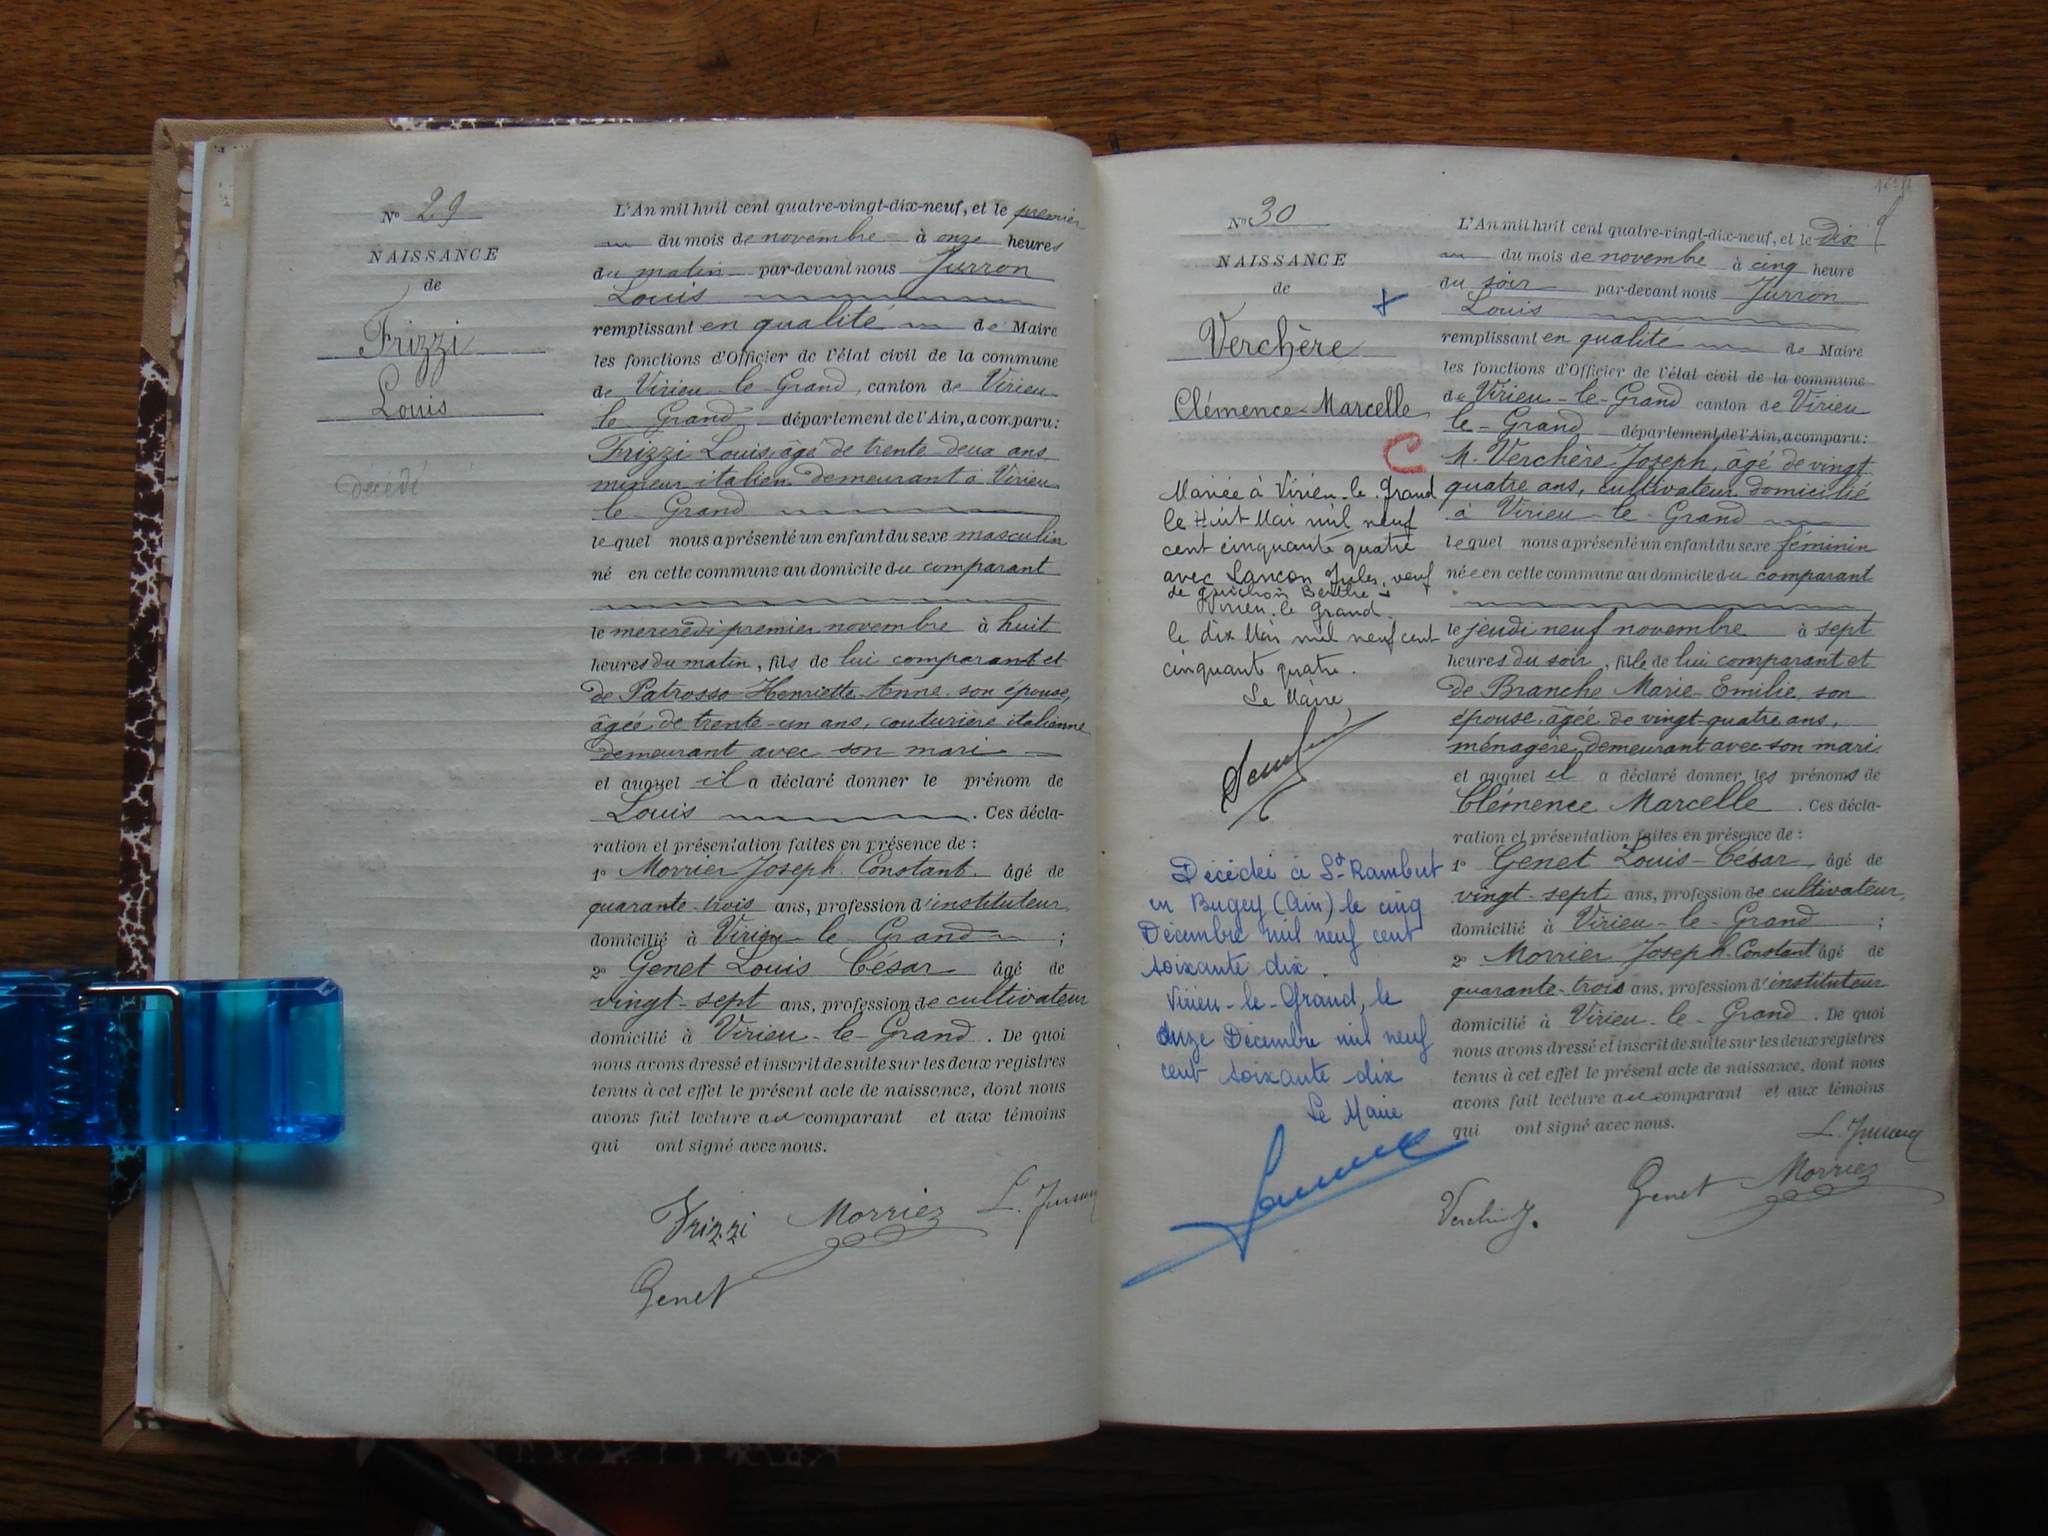 N° 29
NAISSANCE
de
Frizzi
Louis
décédé
L'An mil huit cent quatre-vingt-dix-neuf, et le premier
du mois de novembre à onze heures
du matin par-devant nous Jurron
Louis
remplissant en qualité de Maire
les fonctions d'Officier de l'état civil de la commune
de Virieu-le-Grand, canton de Virieu
le Grand département de l'Ain, a comparu:
Frizzi Louis, âgé de trente-deux ans
mineur italien demeurant à Virieu
le Grand
lequel nous a présenté un enfant du sexe masculin
né en cette commune au domicile du comparant
le mercredi premier novembre à huit
heures du matin, fils de lui comparant et
de Patrosso Henriette-Anne son épouse,
âgée de trente-un ans, couturière italienne
demeurant avec son mari
et auquel il a déclaré donner le prénom de
Louis. Ces décla-
ration et présentation faites en présence de :
1° Morrier Joseph Constant âgé de
quarante-trois ans, profession d'instituteur
domicilié à Virieu-le-Grand ;
2° Genet Louis César âgé de
vingt-sept ans, profession de cultivateur
domicilié à Virieu-le-Grand. De quoi
nous avons dressé et inscrit de suite sur les deux registres
tenus à cet effet le présent acte de naissance, dont nous
avons fait lecture au comparant et aux témoins
qui ont signé avec nous.
Frizzi Morriez
Genet
N° 30
NAISSANCE
de
Verchère
Clémence-Marcelle
C
Mariée à Virieu-le-Grand
le Huit Mai mil neuf
cent cinquante quatre
avec Lançon Jules, veuf
de Guichon Berthe
Virieu-le-Grand.
le dix Mai mil neuf cent
cinquante quatre.
Le Maire,
Décédée à St-Rambert
en Bugey (Ain) le cinq
Décembre mil neuf cent
soixante dix.
Virieu-le-Grand, le
onze Décembre mil neuf
cent soixante-dix
Le Maire
L'An mil huit cent quatre-vingt-dix-neuf, et le dix
du mois de novembre à cinq heure
du soir par-devant nous Jurron
Louis
remplissant en qualité de Maire
les fonctions d'Officier de l'état civil de la commune
de Virieu-le-Grand canton de Virieu
le-Grand département de l'Ain, a comparu:
M. Verchère Joseph, âgé de vingt
quatre ans, cultivateur domicilié
à Virieu-le-Grand
lequel nous a présenté un enfant du sexe féminin
née en cette commune au domicile du comparant
le jeudi neuf novembre à sept
heures du soir, fille de lui comparant et
de Branche Marie-Emilie, son
épouse, âgée de vingt-quatre ans,
ménagère, demeurant avec son mari
et auquel il a déclaré donner les prénoms de
Clémence Marcelle. Ces décla-
ration et présentation faites en présence de :
1° Genet Louis-César, âgé de
vingt-sept ans, profession de cultivateur,
domicilié à Virieu-le-Grand ;
2° Morrier Joseph-Constant âgé de
quarante-trois ans, profession d'instituteur
domicilié à Virieu-le-Grand. De quoi
nous avons dressé et inscrit de suite sur les deux registres
tenus à cet effet le présent acte de naissance, dont nous
avons fait lecture au comparant et aux témoins
qui ont signé avec nous.
Genet Morriez